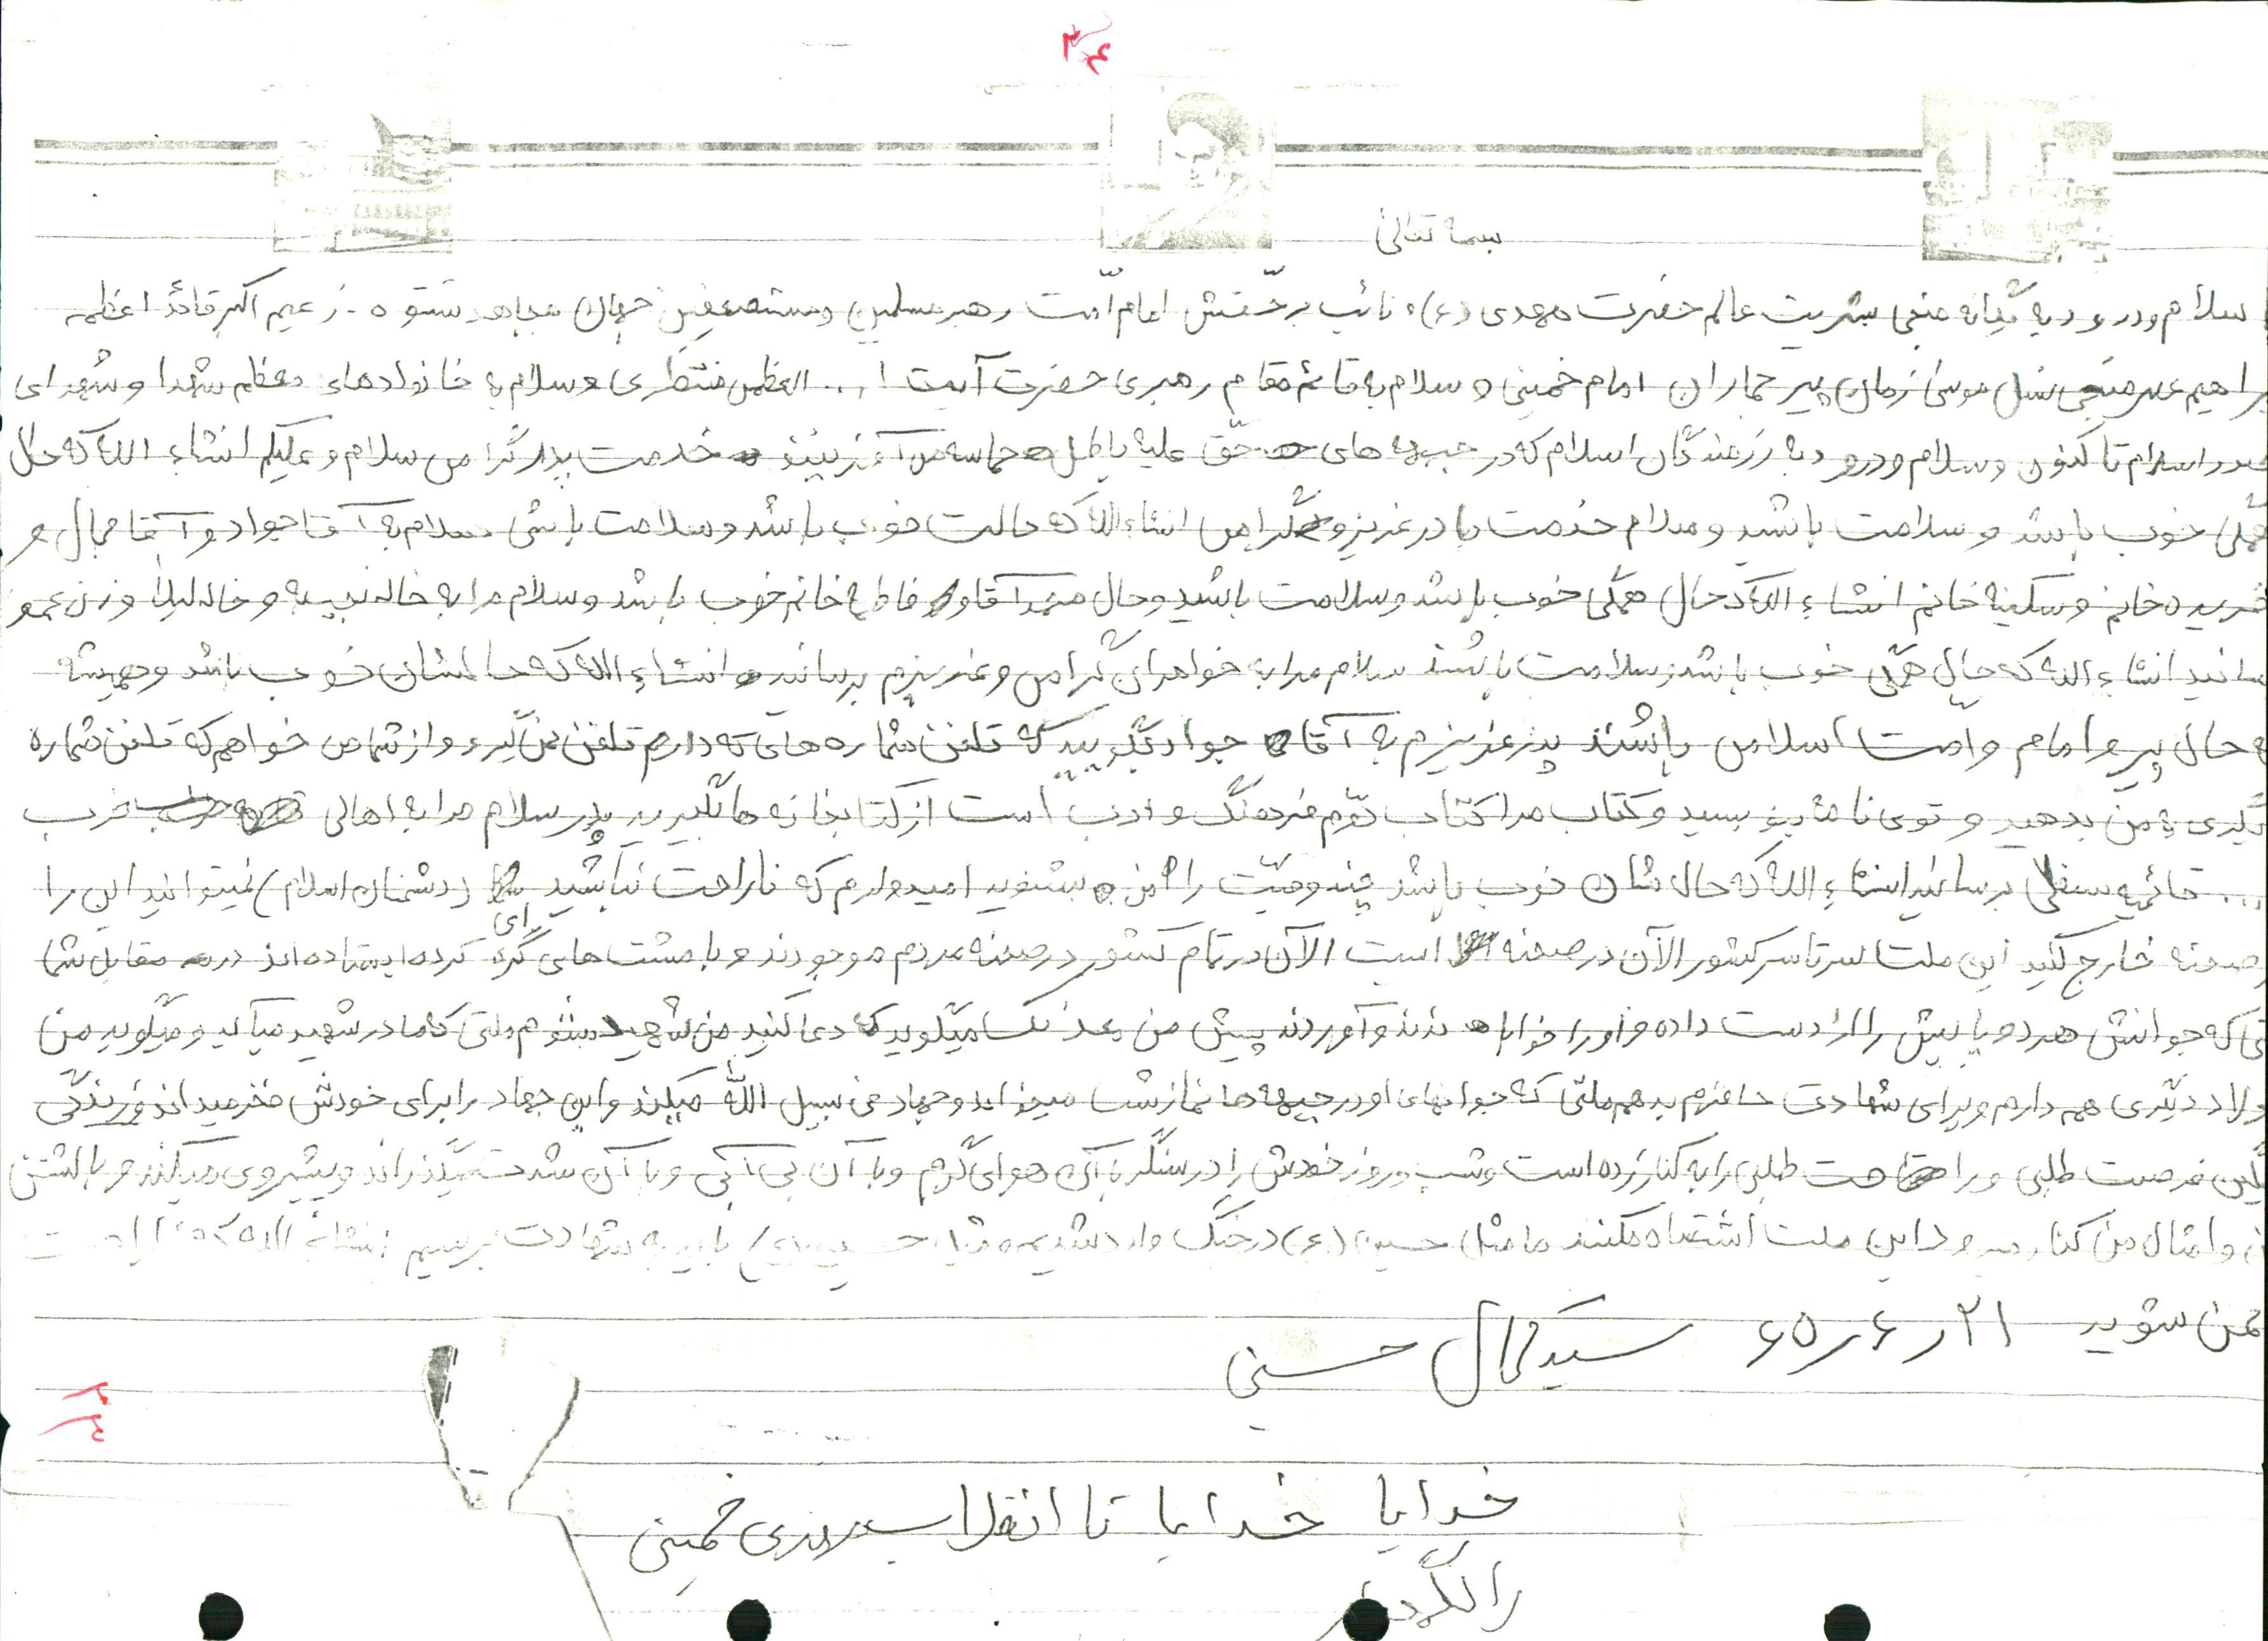 ۲۴
بسمه تعالی
سلام و درود به یگانه منجی بشریت عالم حضرت مهدی (ع) و نائب برحقش امام امت رهبر مسلمین و مستضعفین جهان مجاهد نستوه . زعیم اکبر قائد اعظم
براهیم عصر منجی نسل موسی زمان پیر جماران امام خمینی و سلام به قائم مقام رهبری حضرت آیت ا... العظمی منتظری و سلام به خانوادهای معظم شهدا و شهدای
صدر اسلام تا کنون و سلام و درود به رزمندگان اسلام که در جبهه های حق علیه باطل حماسه می آفرینند خدمت پدر گرامی سلام و علیکم انشاء الله که حال
همگی خوب باشد و سلامت باشید و سلام خدمت مادر عزیز و گرامی انشاء الله که حالت خوب باشد و سلامت باشی سلام به آقا جواد و آقا جمال و
فریده خانم و سکینه خانم انشاء الله که حال همگی خوب باشد و سلامت باشید و حال محمد آقا و فاطمه خانم خوب باشد و سلام مرا به خاله نجیبه و خاله لیلا و زن عمو
سانید انشاء الله که حال همگی خوب باشد و سلامت باشند سلام مرا به خواهران گرامی و عزیزم برسانید انشاء الله که حالشان خوب باشد و همیشه
حال پیرو امام و امت اسلامی باشند پدر عزیزم به آقا جواد بگویید که تلفن شماره هایی که دارم تلفن نمی گیرد و از شما می خواهم که تلفن شماره
گیری به من بدهید و توی نامه بنویسید و کتاب مرا کتاب دوم فرهنگ و ادب است از کتابخانه ما بگیرید پدر سلام مرا به اهالی حزب
... قائمیه سفلی برسانید انشاء الله که حال شان خوب باشد چند وصیت را از من بشنوید امیدوارم که ناراحت نباشید (دشمنان اسلام) نمیتوانید این را
صحنه خارج کنید این ملت سرتاسر کشور الآن در صحنه است الآن در تمام کشور در صحنه مردم موجودند و با مشت های گره کرده ایستاده اند در مقابل شما
تی که جوانش هر دو پایش را از دست داده و او را آوردند پیش من میگوید که دعا کنید من شهید بشوم ملتی که مادر شهید میآید و میگوید من
ولاد دیگری هم دارم و برای شهادت حاضرم بدهم ملتی که جوانهای او در جبهه ها نماز شب میخواند و جهاد فی سبیل الله میکند و این جهاد را برای خودش فخر میداند و زندگی
فرصت طلبی و راحت طلبی را به کنار زده است و شب و روز خودش را در سنگر با آن هوای گرم و با آن بی آبی و با آن شدت میگذراند و پیشروی میکند و با کشتن
ن و امثال من کنار میرود این ملت اشتباه مکنند ما مثل حسین (ع) در جنگ وارد شدیم و مثل حسین (ع) باید به شهادت برسیم انشاء الله که
من شوید ۲۱ ر ۶ ر ۶۵ سید کمال حسینی
۲۴
خدایا خدایا تا انقلاب مهدی خمینی
را نگهدار